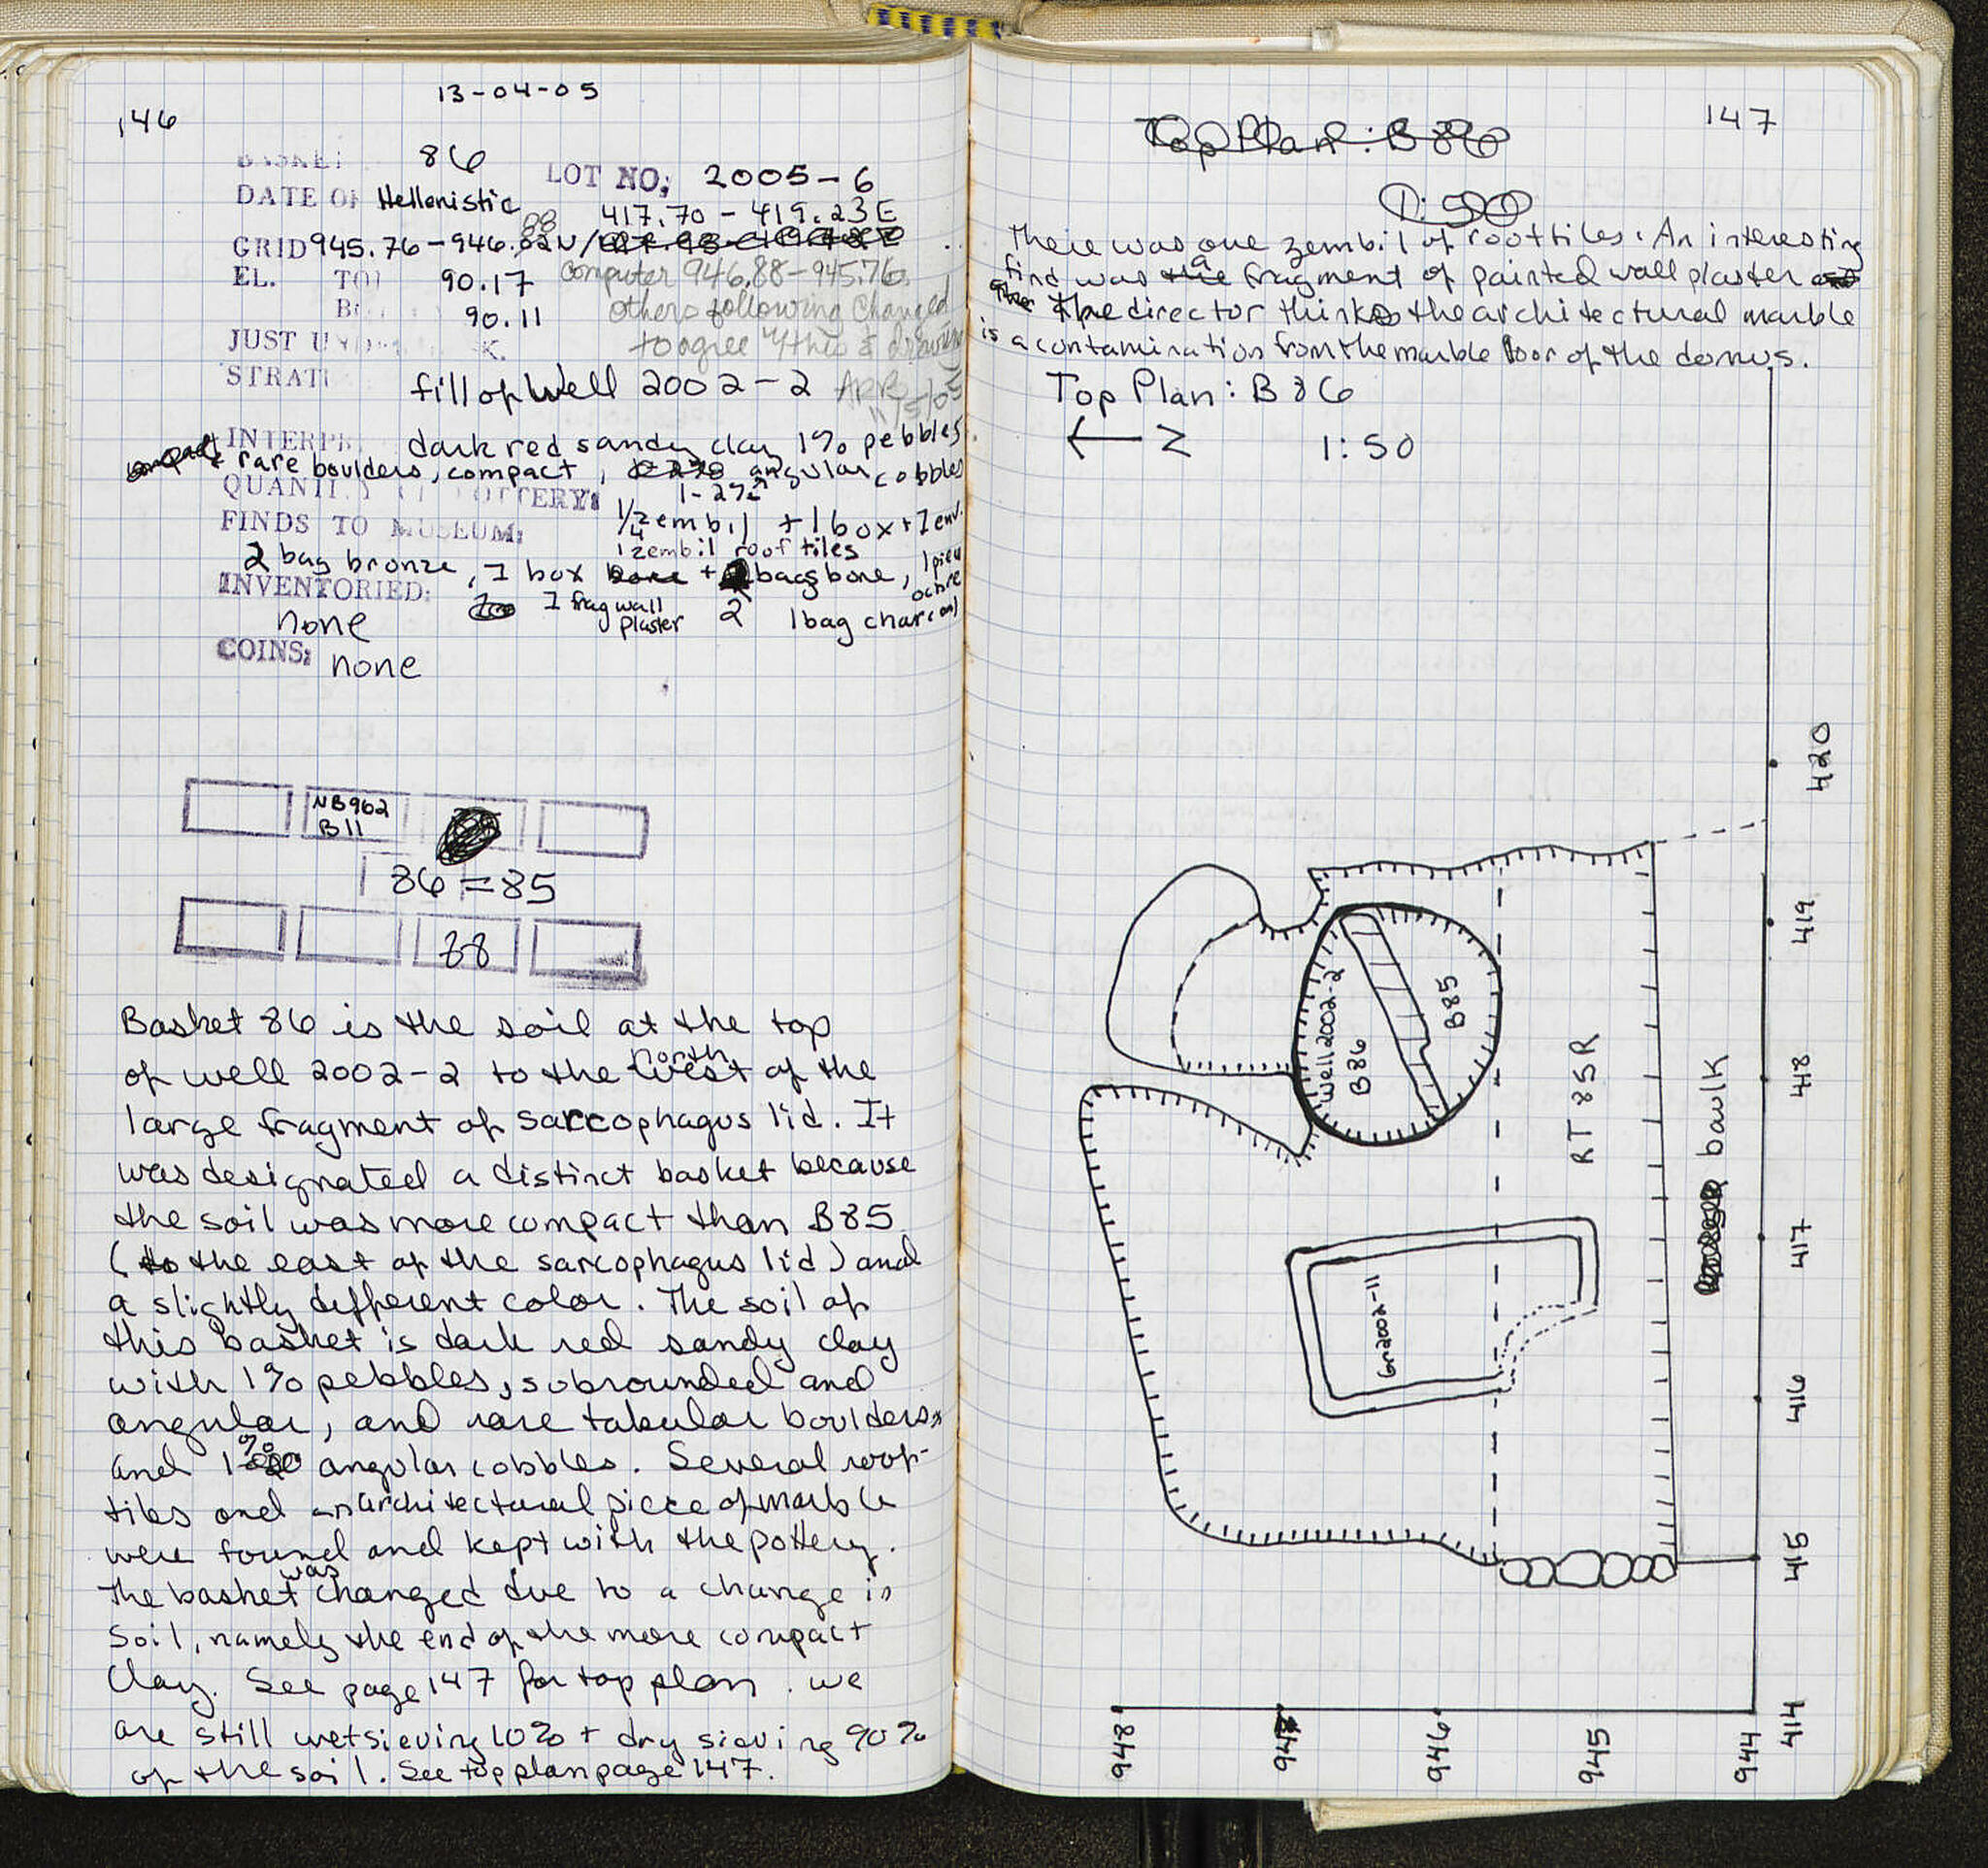 13-04-05
146
BASKET 86
LOT NO; 2005-6
DATE OF Hellenistic
417.70 - 419.23 E
GRID 945.76-946.88 N/
EL. TOP 90.17
computer 946.88-945.76
B 90.11
others following changed
JUST UNDER K.
to agree w/ this & drawing
STRATI fill of Well 2002-2
11/5/05
INTERPR dark red sandy clay 1% pebbles
+ rare boulders, compact, angular cobbles
1-2%
QUANTITY OF POTTERY:
1/4 zembil + 1 box + 1 env.
FINDS TO MUSEUM:
1 zembil roof tiles
2 bag bronze, 1 box + bags bone, 1 piece
ochre
INVENTORIED:
1 frag wall
plaster
2
1 bag charcoal
none
COINS; none
NB962
B11
86 = 85
88
Basket 86 is the soil at the top
of well 2002-2 to the north of the
large fragment of sarcophagus lid. It
was designated a distinct basket because
the soil was more compact than B85
(to the east of the sarcophagus lid) and
a slightly different color. The soil of
this basket is dark red sandy clay
with 1% pebbles, subrounded and
angular, and rare tabular boulders,
and 1% angular cobbles. Several roof-
tiles and an architectural piece of marble
were found and kept with the pottery.
The basket was changed due to a change in
soil, namely the end of the more compact
clay. See page 147 for top plan. we
are still wetsieving 10% + dry sieving 90%
of the soil. See top plan page 147.
147
Top Plan: B86
1:50
There was one zembil of rooftiles. An interesting
find was a fragment of painted wall plaster
The director thinks the architectural marble
is a contamination from the marble floor of the domus.
Top Plan: B86
← N
1:50
420
419
418
417
416
415
414
well 2002-2
B86
B85
RT 8SR
baulk
grave 2002-11
948
947
946
945
944